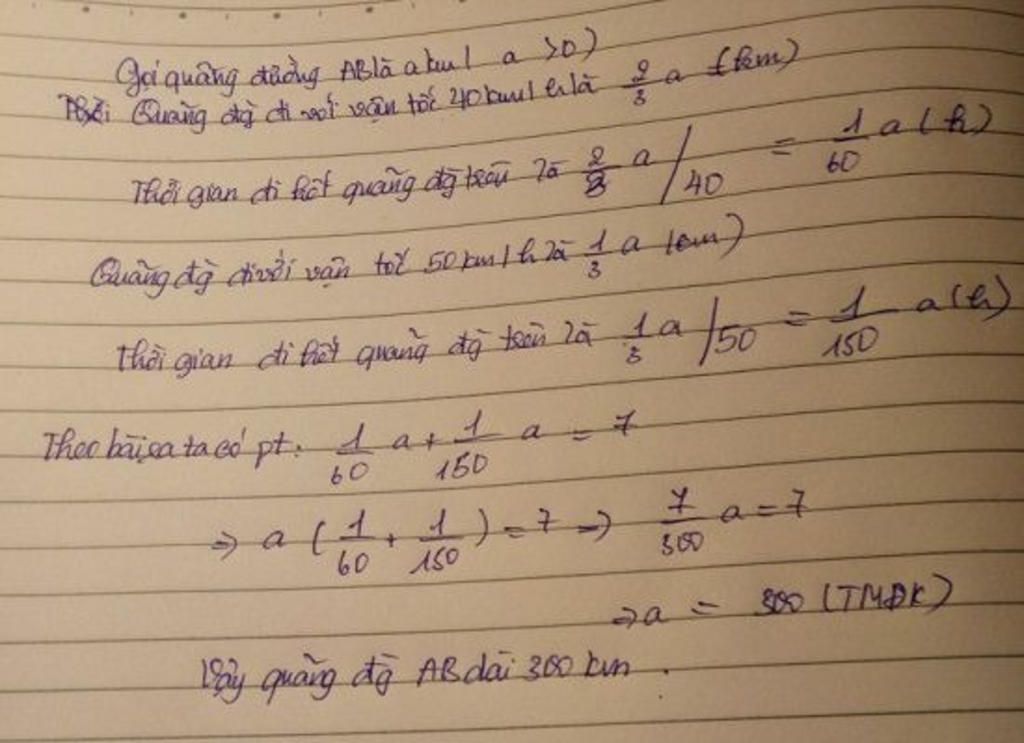 Gọi quãng đường AB là a km ( a > 0 )
Quãng đg đi với vận tốc 40 km / h là 2/3 a (km)
Thời gian đi hết quãng đg trên là 2/3 a / 40 = 1/60 a ( h )
Quãng đg đi với vận tốc 50 km / h là 1/3 a (km)
Thời gian đi hết quãng đg trên là 1/3 a / 50 = 1/150 a (h)
Theo bài ra ta có pt: 1/60 a + 1/150 a = 7
=> a ( 1/60 + 1/150 ) = 7 => 7/300 a = 7
=> a = 300 (TMĐK)
Vậy quãng đg AB dài 300 km .